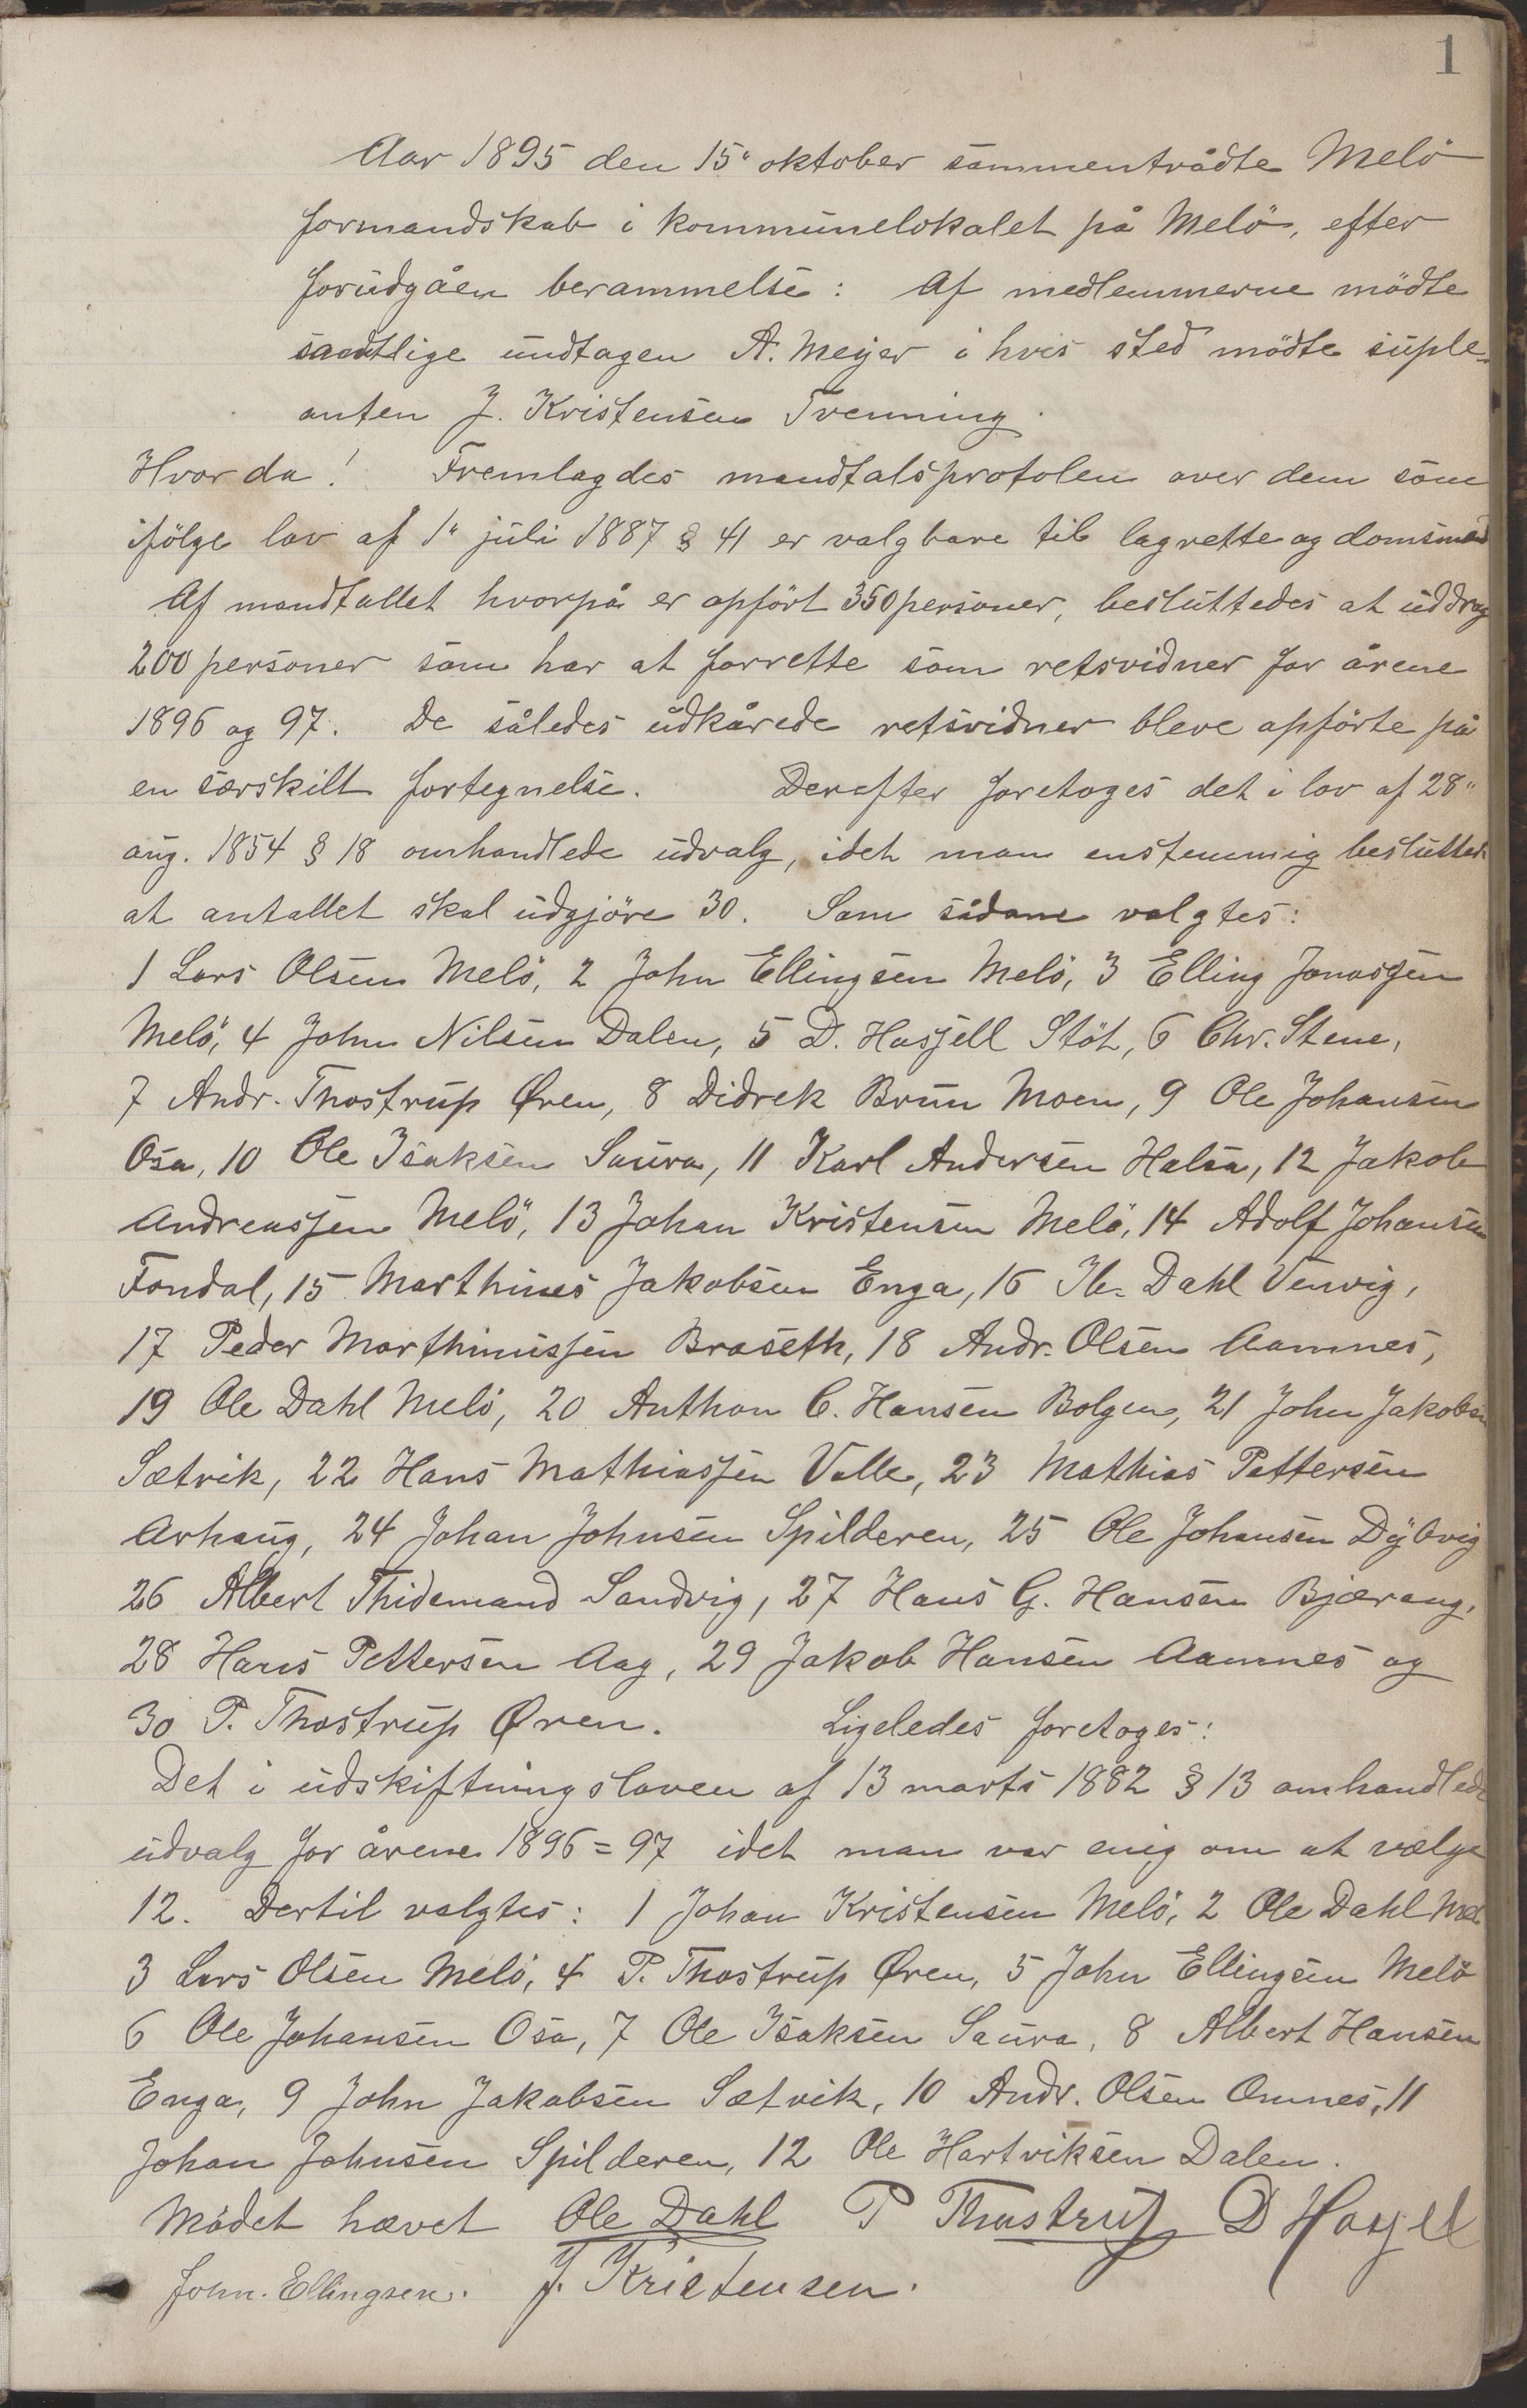 1
Aar 1895 den 15" oktober sammentrådte Melö
formandskab i kommunelokalet på Melö, efter
forudgåen berammelse: Af medlemmerne mödte
samtlige undtagen A. Meyer i hvis sted mödte suple-
anten J. Kristensen Trenning.
Hvor da! Fremlagdes mandtalsprotolen over dem som
ifölge lov af 1" juli 1887 § 41 er valgbare til lagrette og domsmænd
Af mandtallet hvorpå er opfört 350 personer, besluttedes at uddrage
200 personer som har at forrette som retsvidner for årene
1896 og 97. De således udkårede retsvidner bleve opförte på
en særskilt fortegnelse. Derefter foretoges det i lov af 28"
aug. 1854 § 18 omhandlede udvalg, idet man enstemmig besluttede
at antallet skal udgjöre 30. Som sådane valgtes:
1 Lars Olsen Melö, 2 John Ellingsen Melö, 3 Elling Jonassen
Melö, 4 John Nilsen Dalen, 5 D. Hasjell Stöt, 6 Chr. Stene,
7 Andr. Thostrup Øren, 8 Didrek Brun Moen, 9 Ole Johansen
Osa, 10 Ole Isaksen Saura, 11 Karl Andersen Halsa, 12 Jakob
Andreassen Melö, 13 Johan Kristensen Melö, 14 Adolf Johansen
Fondal, 15 Marthines Jakobsen Enga, 16 Ib. Dahl Venvig,
17 Peder Marthinussen Braseth, 18 Andr. Olsen Aamnes,
19 Ole Dahl Melö, 20 Anthon C. Hansen Bolgen, 21 John Jakobsen
Sætvik, 22 Hans Mathiassen Valle, 23 Mathias Pettersen
Arhaug, 24 Johan Johnsen Spilderen, 25 Ole Johansen Dybvig
26 Albert Thidemand Sandvig, 27 Hans G. Hansen Bjærang,
28 Hans Pettersen Aag, 29 Jakob Hansen Aamnes og
30 P. Thostrup Øren. Ligeledes foretoges:
Det i udskiftningsloven af 13 marts 1882 § 13 omhandlede
udvalg for årene 1896=97 idet man var enig om at vælge
12. Dertil valgtes: 1 Johan Kristensen Melö, 2 Ole Dahl Mel
3 Lars Olsen Melö, 4 P. Thostrup Øren, 5 John Ellingsen Melö
6 Ole Johansen Osa, 7 Ole Isaksen Saura, 8 Albert Hansen
Enga, 9 John Jakobsen Sætvik, 10 Andr. Olsen Omnes, 11
Johan Johnsen Spilderen, 12 Ole Hartviksen Dalen.
Mödet hævet Ole Dahl P Thostrup D Hasjell
John. Ellingsen. J. Kristensen.